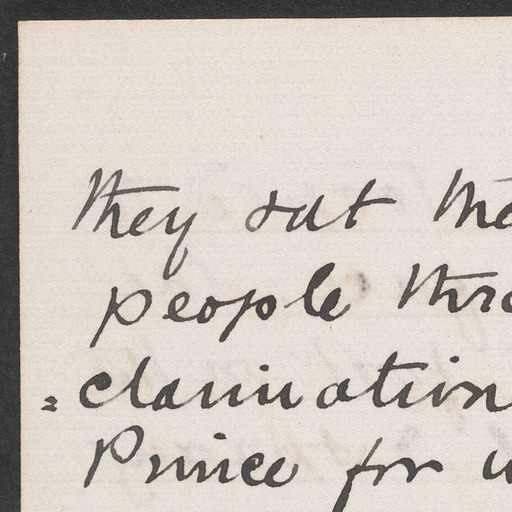 they sat the
people thro
=clamation
Prince for w